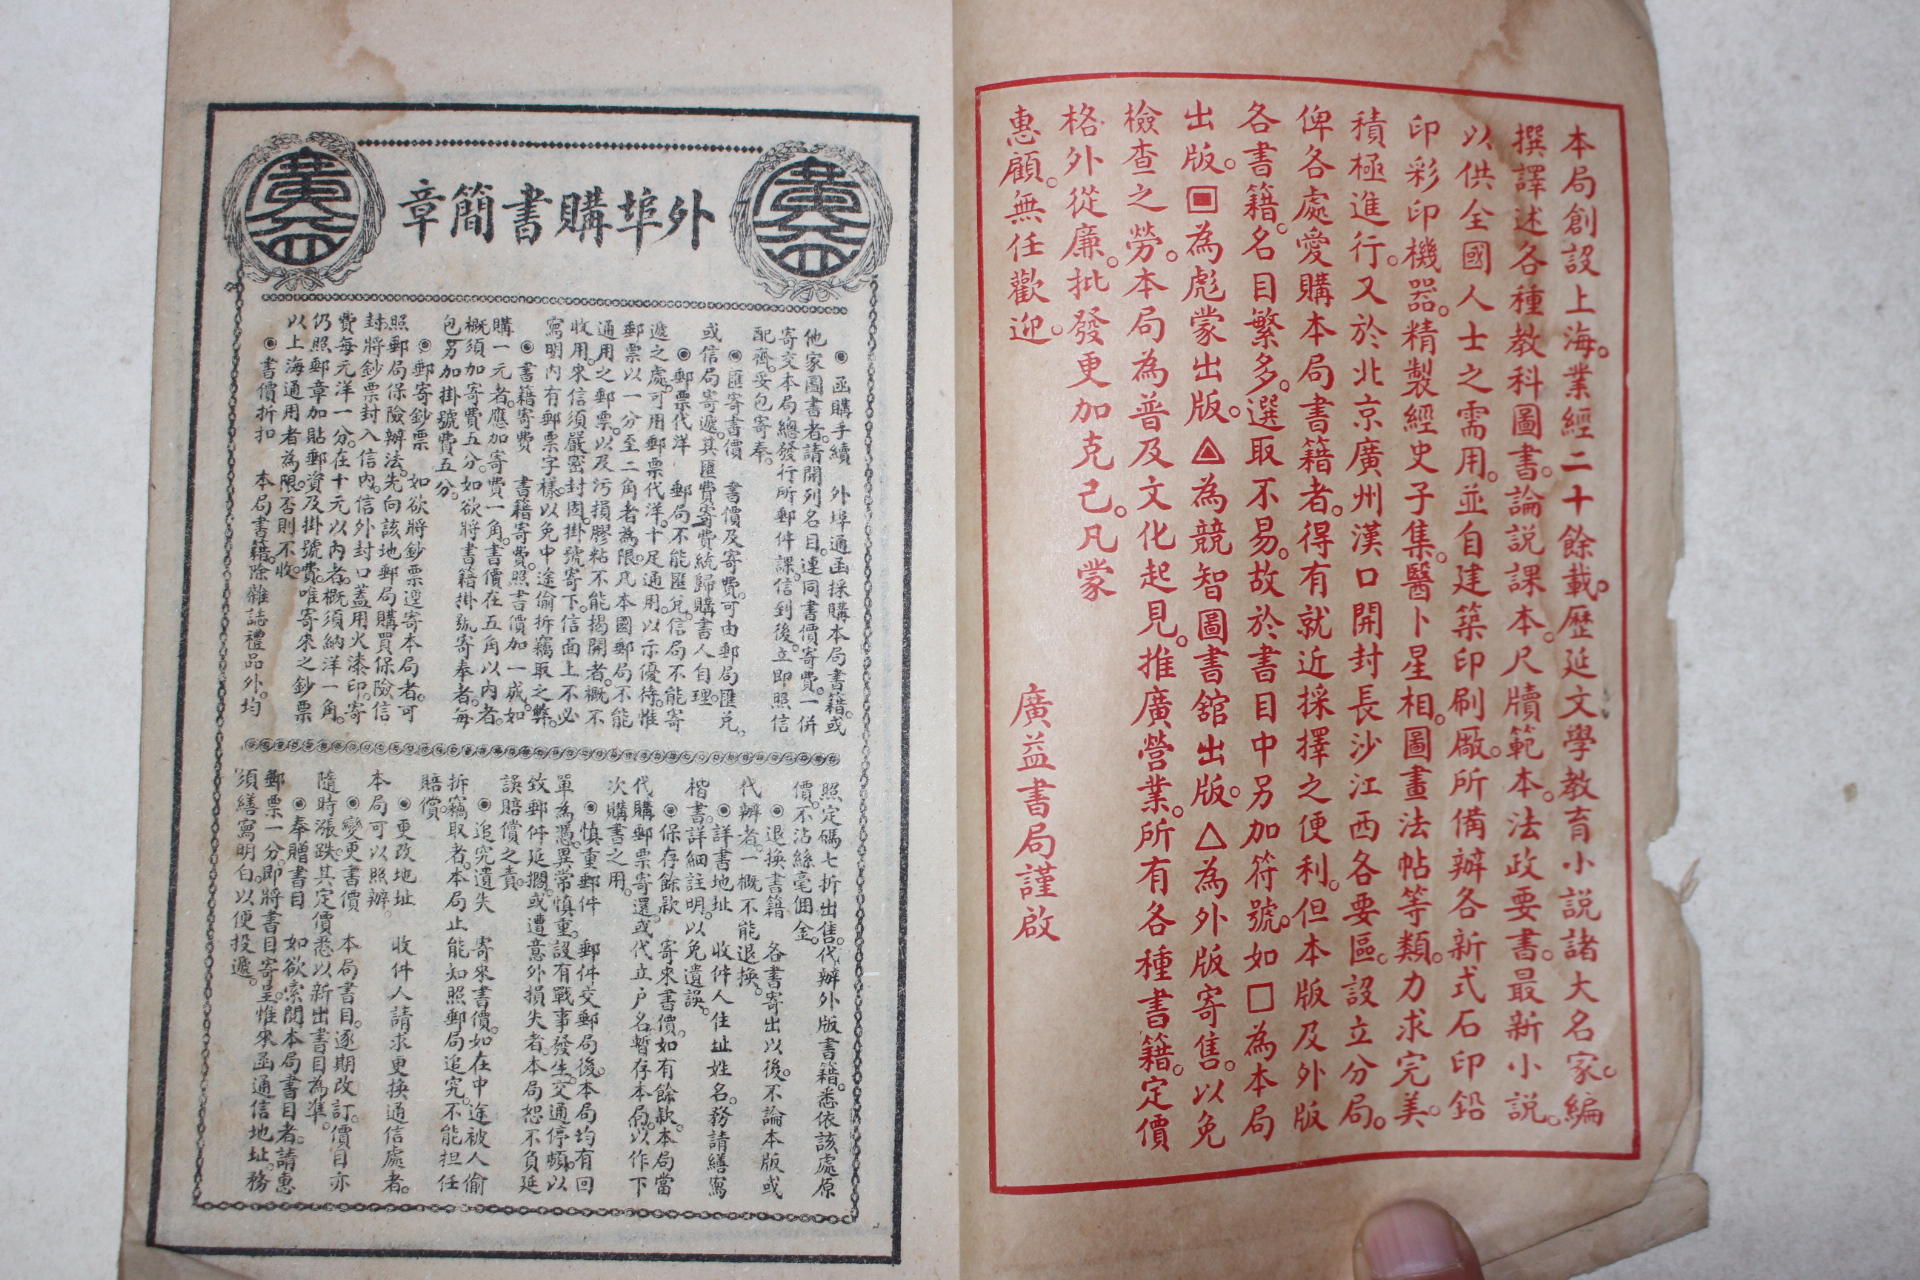 本局創設上海。業經二十餘載。歷延文學教育小説諸大名家。編
撰譯述各種教科圖書。論説課本。尺牘範本。法政要書。最新小説。
以供全國人士之需用。並自建築印刷廠。所備辦各新式石印鉛
印彩印機器。精製經史子集。醫卜星相。圖畫法帖等類。力求完美。
積極進行。又於北京廣州漢口開封長沙江西各要區。設立分局。
俾各處愛購本局書籍者。得有就近採擇之便利。但本版及外版
各書籍。名目繁多。選取不易。故於書目中另加符號。如□為本局
出版。▣為彪蒙出版。◬為競智圖書舘出版。△為外版寄售。以免
檢查之勞。本局為普及文化起見。推廣營業。所有各種書籍。定價
格外從廉。批發更加克己。凡蒙
惠顧。無任歡迎。
廣益書局謹啟
廣益
外埠購書簡章
廣益
◉函購手續 外埠通函採購本局書籍。或
他家圖書者。請開列名目。連同書價寄費。一併
寄交本局總發行所郵件課。信到後。立即照信
配齊。妥包寄奉。
◉匯寄書價 書價及寄費。可由郵局匯兌。
或信局寄遞。其匯費寄費。統歸購書人自理。
◉郵票代洋 郵局不能匯兌。信局不能寄
遞之處。可用郵票代洋。十足通用。以示優待。惟
郵票以一分至二角者為限。凡本國郵局不能
通用之郵票。以及污損膠粘不能揭開者。概不
收用。來信須嚴密封固。掛號寄下。信面上不必
寫明內有郵票字樣。以免中途偷拆竊取之弊。
◉書籍寄費 書籍寄費。照書價加一成。如
購一元者。應加寄費一角。書價在五角以內者。
概須加寄費五分。如欲將書籍掛號寄奉者。每
包另加掛號費五分。
◉郵寄鈔票 如欲將鈔票逕寄本局者。可
照郵局保險辦法。先向該地郵局購買保險信
封。將鈔票封入信內。信外封口蓋用火漆印。寄
費每元洋一分。在十元以內者。概須納洋一角。
仍照郵章加貼郵資及掛號費。唯寄來之鈔票
以上海通用者為限。否則不收。
◉書價折扣 本局書籍。除雜誌禮品外。均
照定碼七折出售。代辦外版書籍。悉依該處原
價。不沾絲毫佣金。
◉退換書籍 各書寄出以後。不論本版或
代辦者。一概不能退換。
◉詳書地址 收件人住址姓名。務請繕寫
楷書。詳細註明。以免遺誤。
◉保存餘款 寄來書價。如有餘款。本局當
代購郵票寄還。或代立戶名。暫存本局。以作下
次購書之用。
◉慎重郵件 郵件交郵局後。本局均有回
單為憑。異常慎重。設有戰事發生。交通停頓。以
致郵件延擱。或遭意外損失者。本局恕不負延
誤賠償之責。
◉追究遺失 寄來書價。如在中途被人偷
拆竊取者。本局止能知照郵局追究。不能担任
賠償。
◉更改地址 收件人請求更換通信處者。
本局可以照辦。
◉變更書價 本局書目。逐期改訂。價目亦
隨時漲跌。其定價悉以新出書目為準。
◉奉贈書目 如欲索閱本局書目者。請惠
郵票一分。即將書目寄呈。惟來函通信地址。務
須繕寫明白。以便投遞。